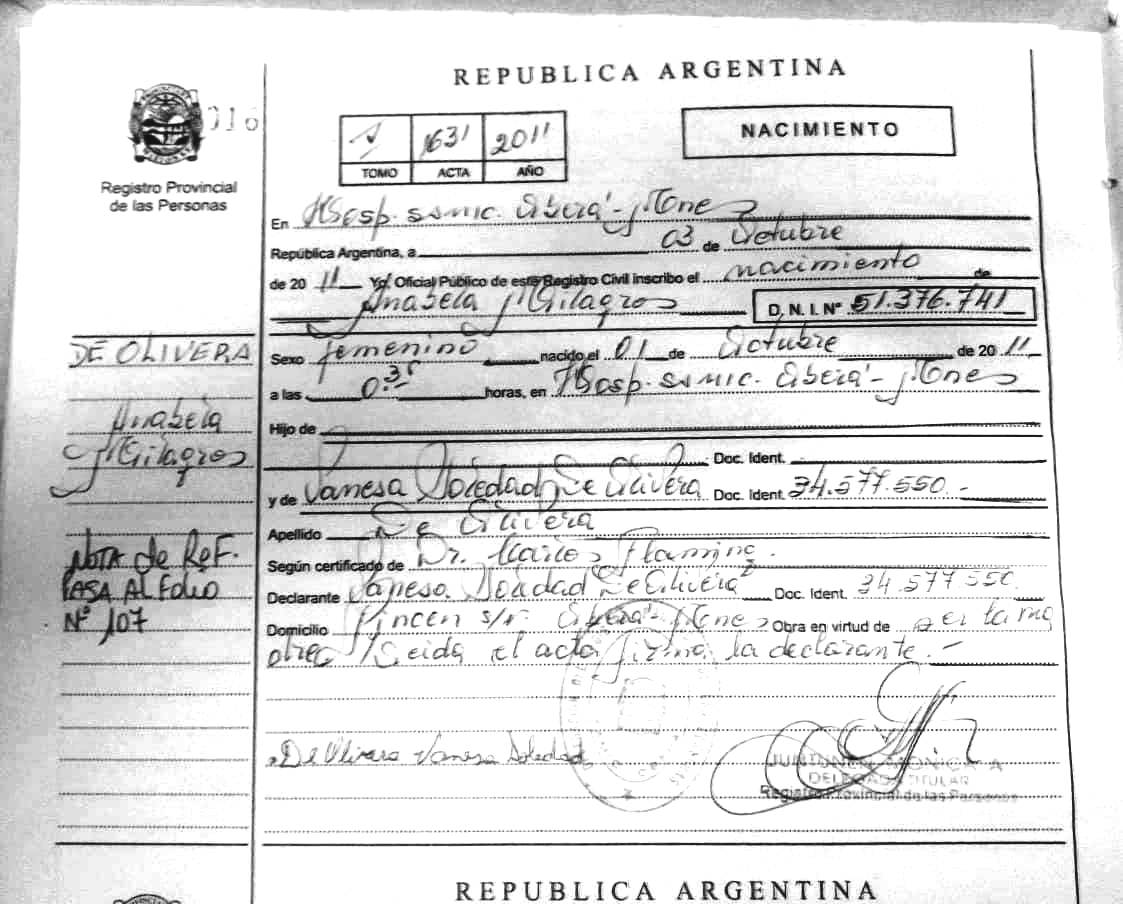 REPUBLICA ARGENTINA
016
1631 2011
TOMO ACTA AÑO
NACIMIENTO
Registro Provincial
de las Personas
En Hosp. ssmic. Oberá - Mones
República Argentina, a 03 de Octubre
de 20 11 Yo, Oficial Público de este Registro Civil inscribo el nacimiento de
Anabela Milagros D. N. I. Nº 51.376.741
DE OLIVERA
Anabela
Milagros
Sexo femenino nacido el 01 de Octubre de 20 11
a las 0.35 horas, en Hosp. ssmic. Oberá - Mones
Hijo de
Doc. Ident.
y de Vanesa Soledad De Olivera Doc. Ident. 34.577.550.-
Apellido De Olivera
Según certificado de Dr. Carlos
Declarante Vanesa Soledad De Olivera Doc. Ident. 34.577.550
Domicilio s/n Oberá - Mones Obra en virtud de ser la ma
dre Leída el acta firma la declarante.-
NOTA de REF.
PASA AL FOLIO
Nº 107
De Olivera Vanesa Soledad
MONICA A
DELEGADA TITULAR
Registro Provincial de las Personas
REPUBLICA ARGENTINA